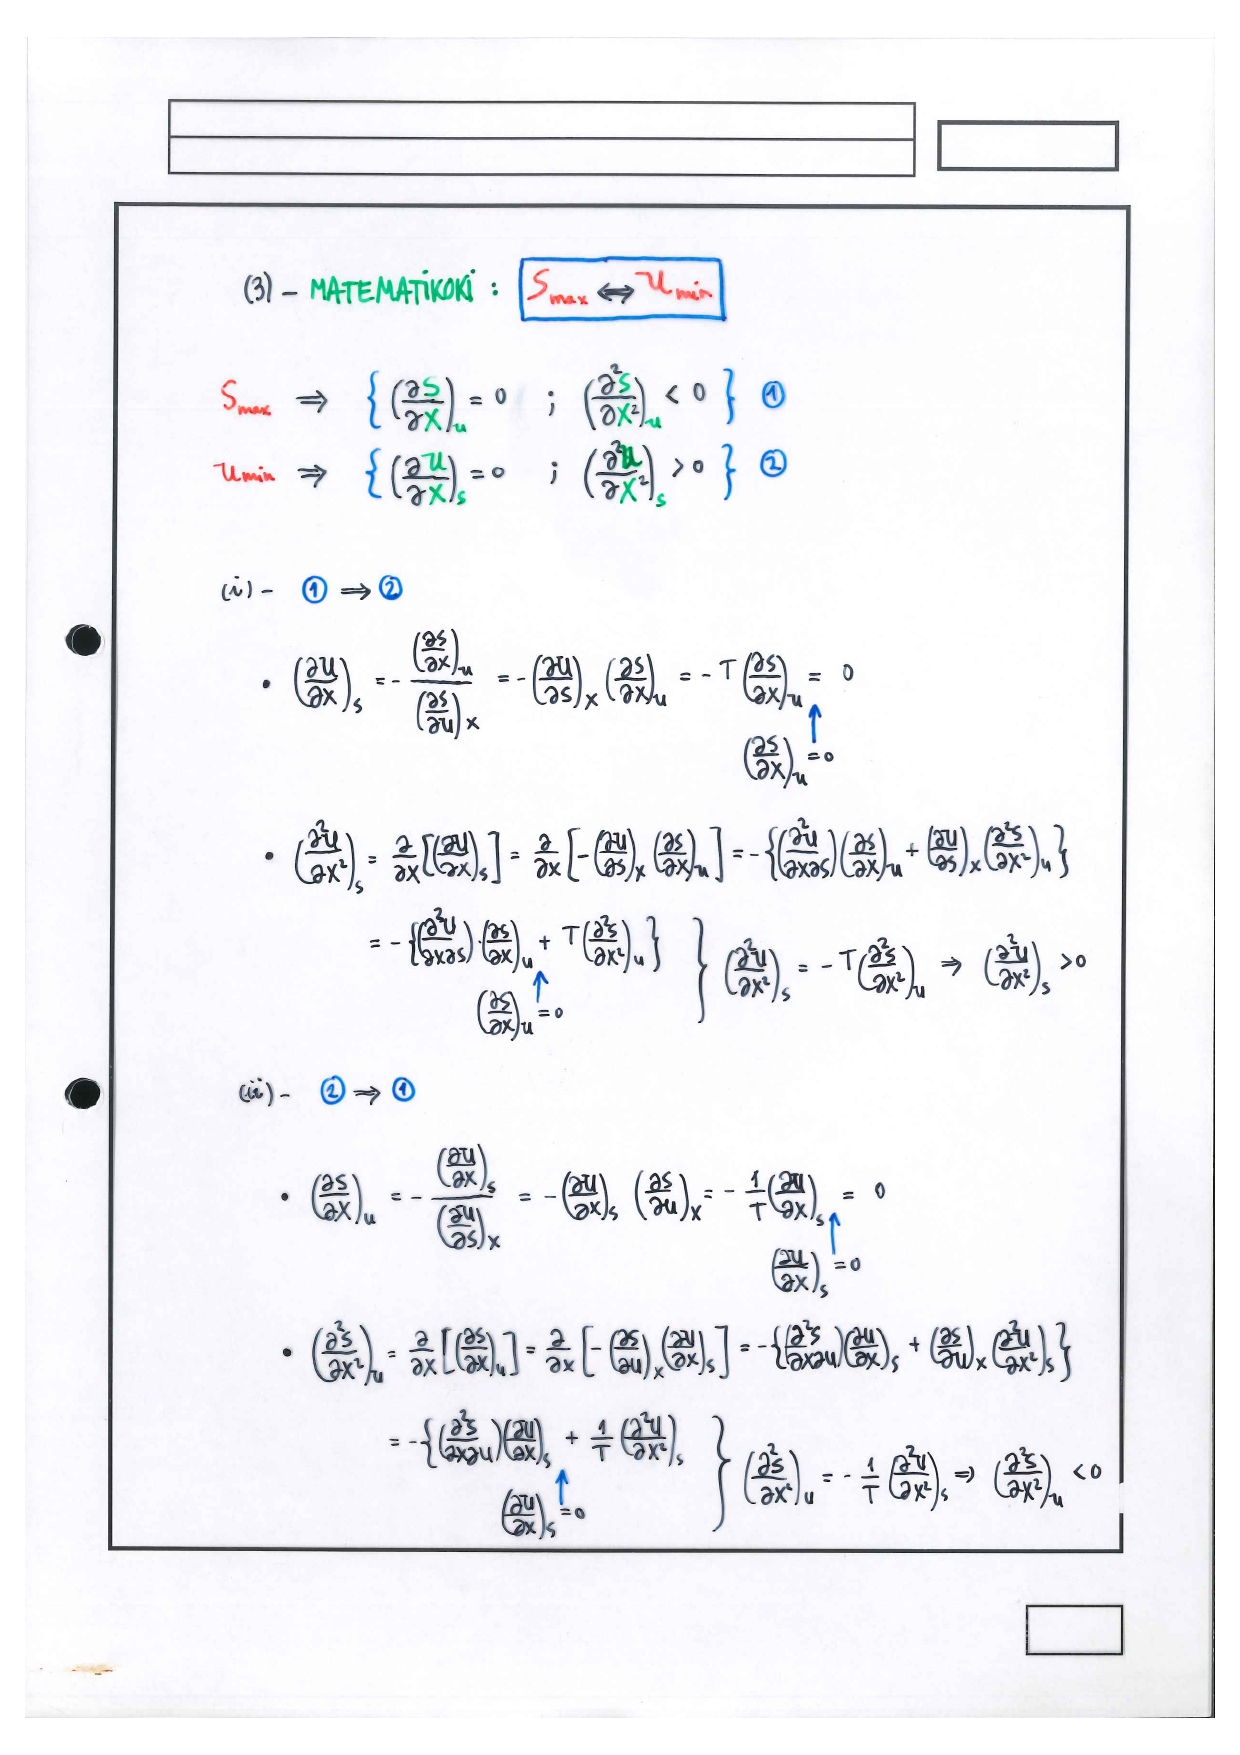 (3) - MATEMATIKOKI : S_max ⇔ U_min
S_max ⇒ { (∂S/∂X)_U = 0 ; (∂²S/∂X²)_U < 0 } ①
U_min ⇒ { (∂U/∂X)_S = 0 ; (∂²U/∂X²)_S > 0 } ②
(i) - ① ⇒ ②
• (∂U/∂X)_S = - (∂S/∂X)_U / (∂S/∂U)_X = - (∂U/∂S)_X (∂S/∂X)_U = - T (∂S/∂X)_U = 0
↑
(∂S/∂X)_U = 0
• (∂²U/∂X²)_S = ∂/∂X [(∂U/∂X)_S] = ∂/∂X [- (∂U/∂S)_X (∂S/∂X)_U] = - {(∂²U/∂X∂S) (∂S/∂X)_U + (∂U/∂S)_X (∂²S/∂X²)_U}
= - {(∂²U/∂X∂S) · (∂S/∂X)_U + T (∂²S/∂X²)_U} } (∂²U/∂X²)_S = - T (∂²S/∂X²)_U ⇒ (∂²U/∂X²)_S > 0
↑
(∂S/∂X)_U = 0
(ii) - ② ⇒ ①
• (∂S/∂X)_U = - (∂U/∂X)_S / (∂U/∂S)_X = - (∂U/∂X)_S (∂S/∂U)_X = - 1/T (∂U/∂X)_S = 0
↑
(∂U/∂X)_S = 0
• (∂²S/∂X²)_U = ∂/∂X [(∂S/∂X)_U] = ∂/∂X [- (∂S/∂U)_X (∂U/∂X)_S] = - {(∂²S/∂X∂U) (∂U/∂X)_S + (∂S/∂U)_X (∂²U/∂X²)_S}
= - {(∂²S/∂X∂U) (∂U/∂X)_S + 1/T (∂²U/∂X²)_S } (∂²S/∂X²)_U = - 1/T (∂²U/∂X²)_S ⇒ (∂²S/∂X²)_U < 0
↑
(∂U/∂X)_S = 0